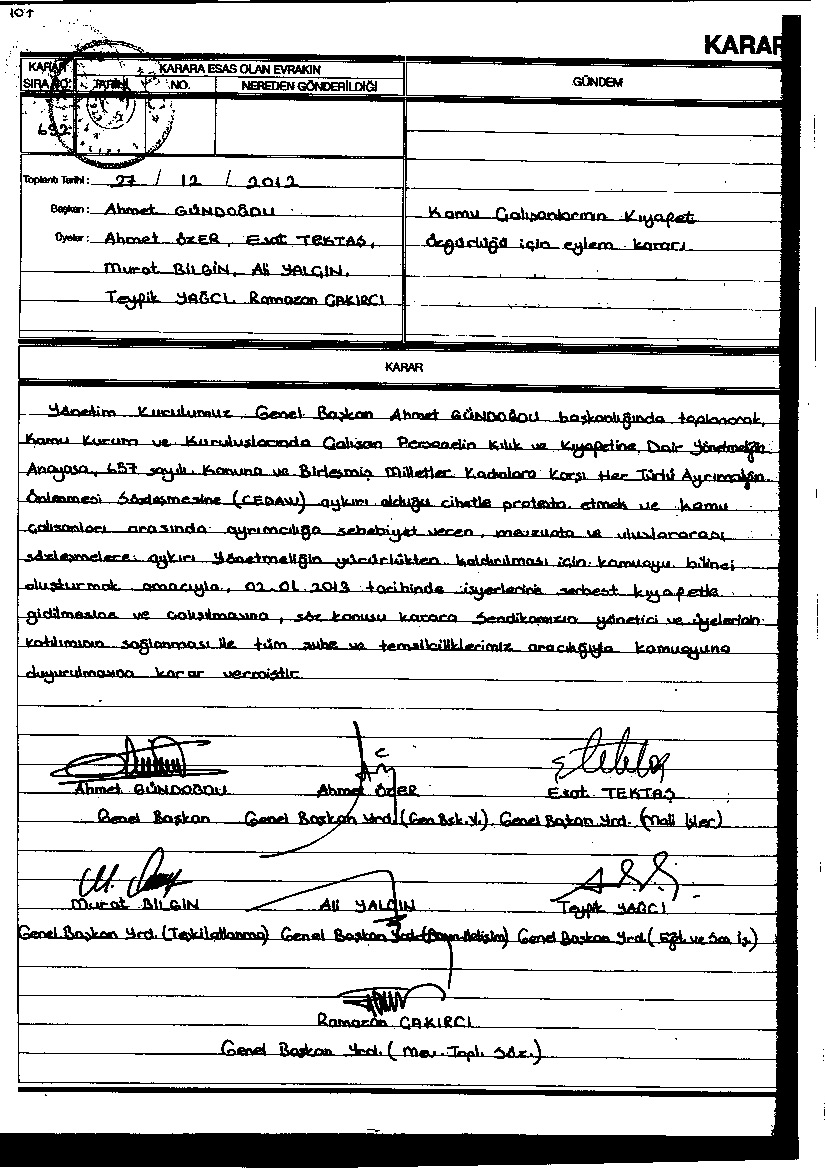 107
KARAR
KARAR SIRA NO.
KARARA ESAS OLAN EVRAKIN
TARİHİ NO. NEREDEN GÖNDERİLDİĞİ
GÜNDEM
692
Toplantı Tarihi: 27 / 12 / 2012
Başkan: Ahmet GÜNDOĞDU
Üyeler: Ahmet ÖZER, Esat TEKTAŞ,
Murat BİLGİN, Ali YALÇIN,
Teyfik YAĞCI, Ramazan ÇAKIRCI
Kamu Çalışanlarının Kıyafet
Özgürlüğü için eylem kararı
KARAR
Yönetim Kurulumuz Genel Başkan Ahmet GÜNDOĞDU başkanlığında toplanarak,
Kamu Kurum ve Kuruluşlarında Çalışan Personelin Kılık ve Kıyafetine Dair Yönetmeliğin
Anayasa, 657 sayılı Kanuna ve Birleşmiş Milletler Kadınlara Karşı Her Türlü Ayrımcılığın
Önlenmesi Sözleşmesine (CEDAW) aykırı olduğu cihetle protesto etmek ve kamu
çalışanları arasında ayrımcılığa sebebiyet veren, mevzuata ve uluslararası
sözleşmelere aykırı Yönetmeliğin yürürlükten kaldırılması için kamuoyu bilinci
oluşturmak amacıyla, 02.01.2013 tarihinde işyerlerine serbest kıyafetle
gidilmesine ve çalışılmasına, söz konusu karara Sendikamızın yönetici ve üyelerinin
katılımının sağlanması ile tüm şube ve temsilciliklerimiz aracılığıyla kamuoyuna
duyurulmasına karar vermiştir.
Ahmet GÜNDOĞDU Ahmet ÖZER Esat TEKTAŞ
Genel Başkan Genel Başkan Yrd. (Gen.Bşk.V.) Genel Başkan Yrd. (Mali İşler)
Murat BİLGİN Ali YALÇIN Teyfik YAĞCI
Genel Başkan Yrd. (Teşkilatlanma) Genel Başkan Yrd. (Basın-İletişim) Genel Başkan Yrd. (Eğt. ve Sos. İş.)
Ramazan ÇAKIRCI
Genel Başkan Yrd. (Mev. Topl. Söz.)